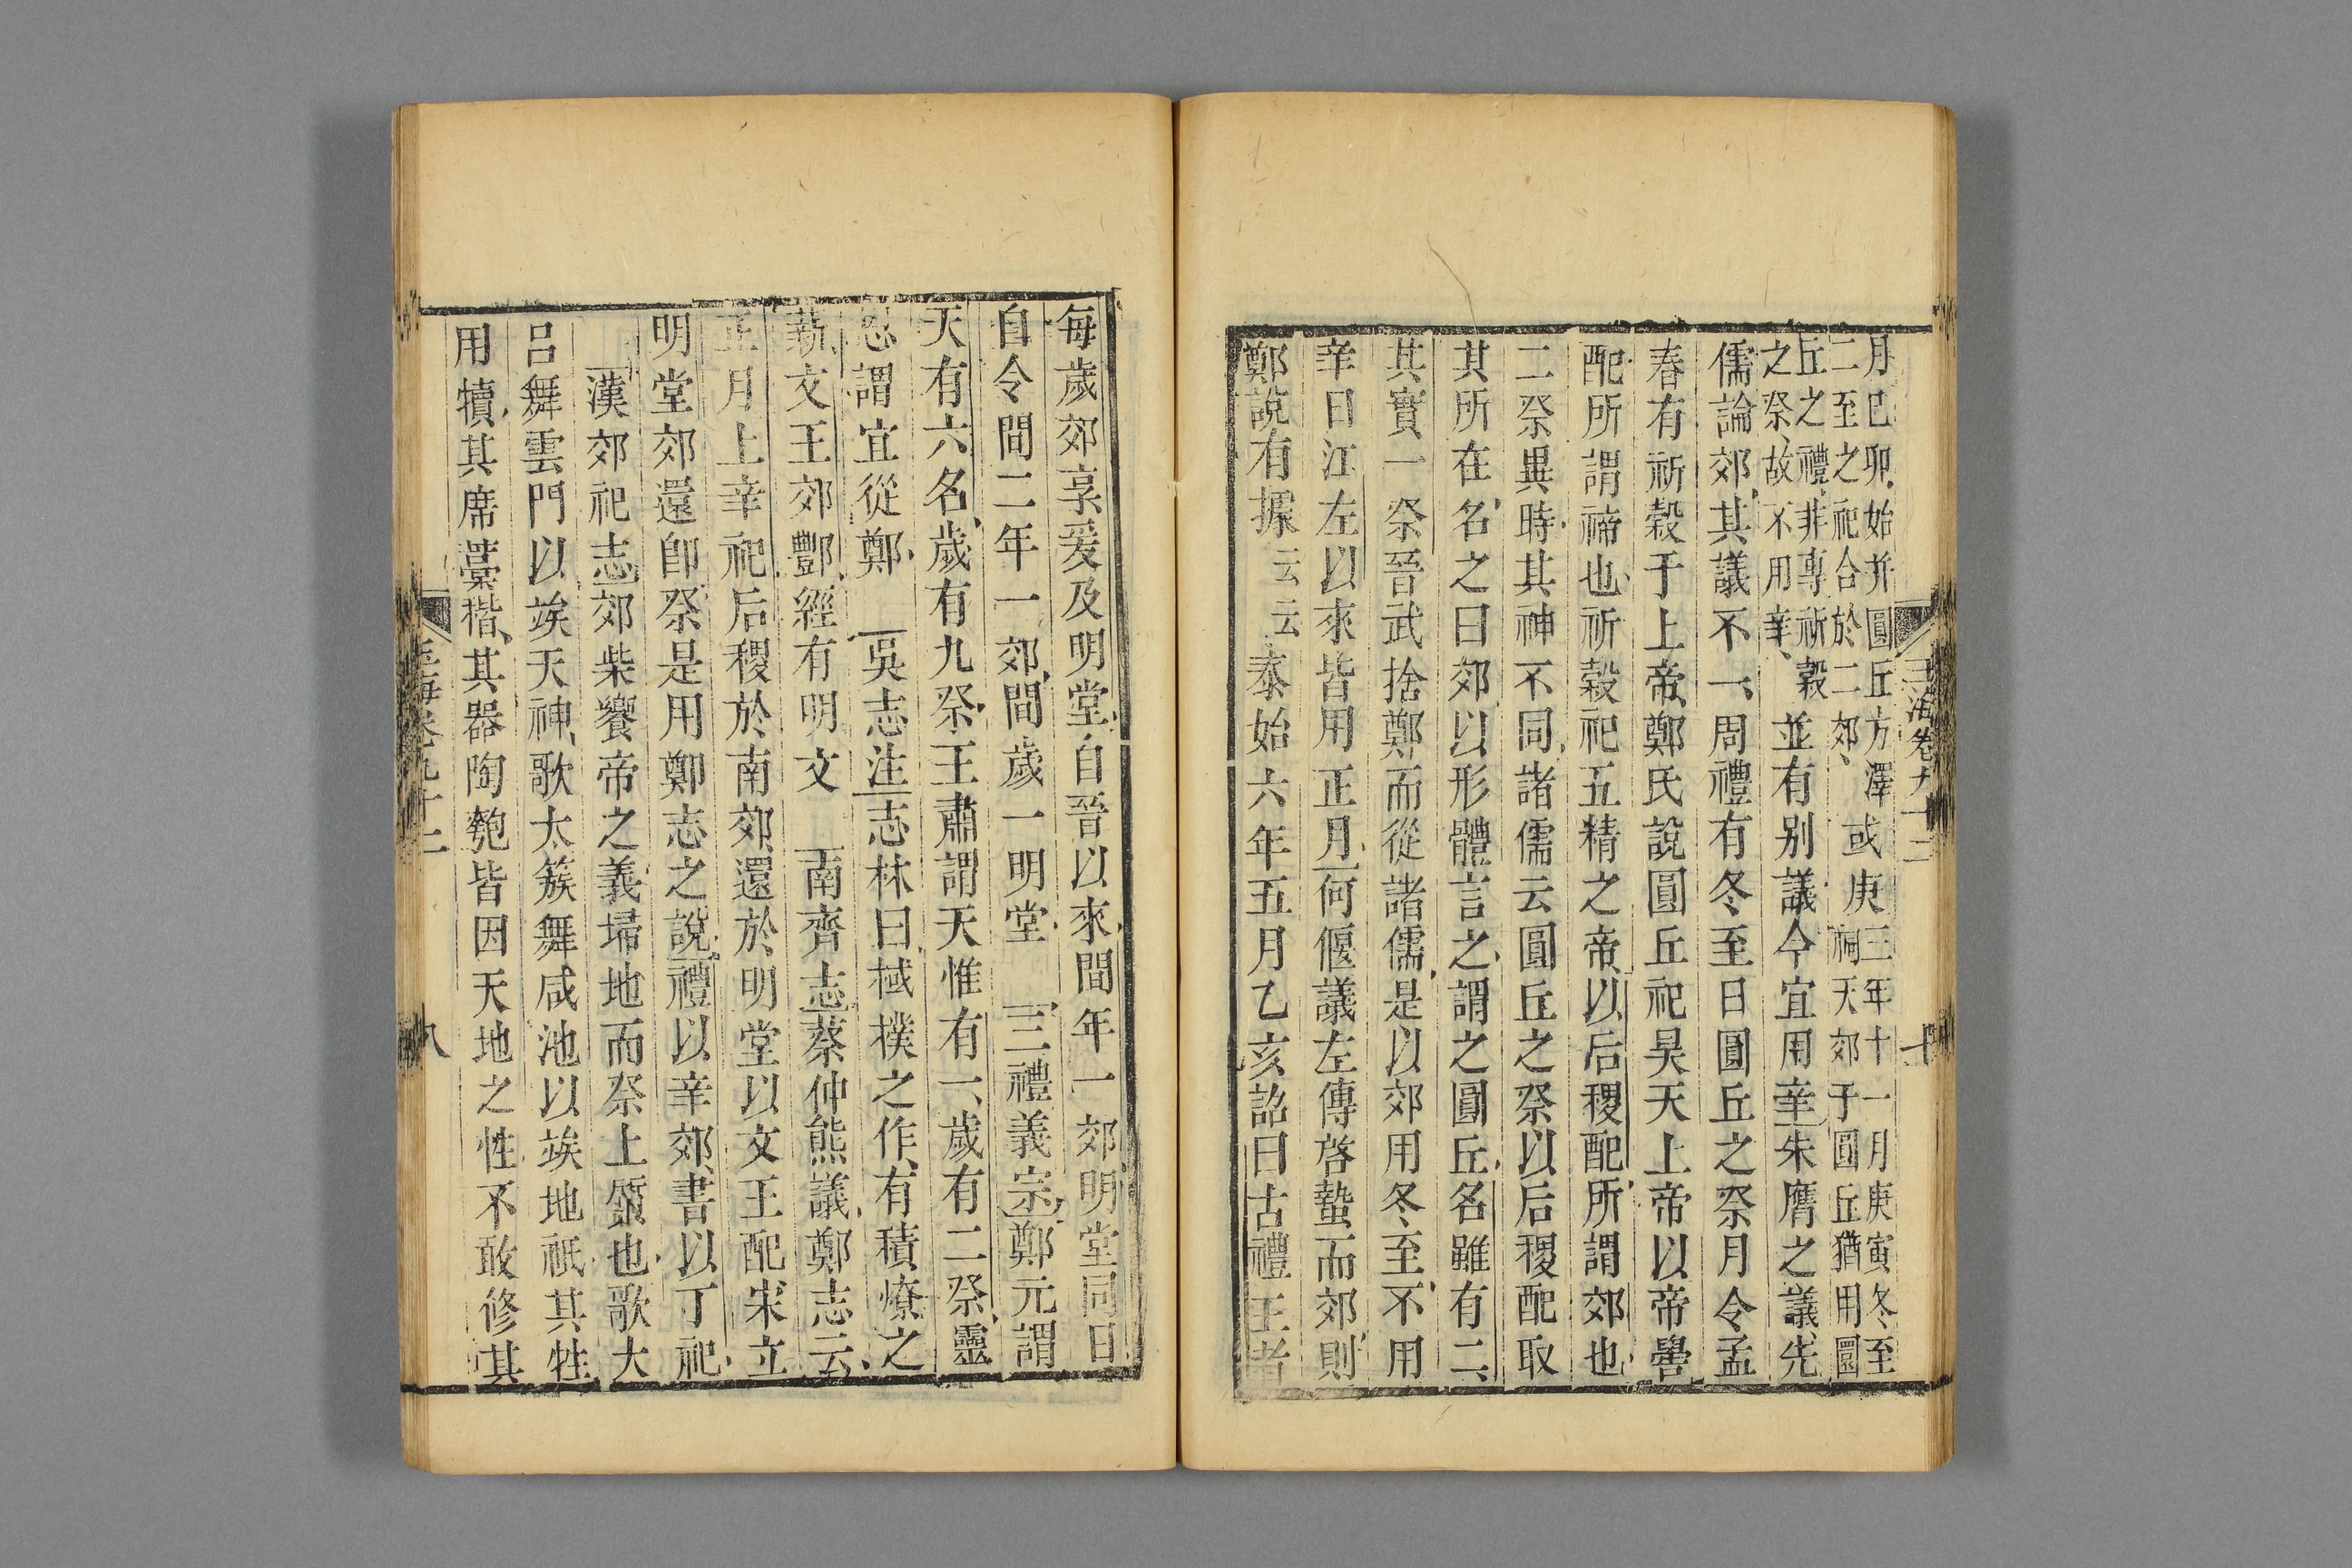 玉海卷九十二 十
月已卯始并圓丘方澤
二至之祀合於二郊
或庚
三年十一月庚寅冬至
祠天郊于圓丘猶用圜
丘之禮非專祈穀
之祭故不用辛
並有别議今宜用辛朱膺之議先
儒論郊其議不一周禮有冬至日圓丘之祭月令孟
春有祈穀于上帝鄭氏說圓丘祀昊天上帝以帝嚳
配所謂禘也祈穀祀五精之帝以后稷配所謂郊也
二祭異時其神不同諸儒云圓丘之祭以后稷配取
其所在名之曰郊以形體言之謂之圓丘名雖有二
其實一祭晉武捨鄭而從諸儒是以郊用冬至不用
辛日江左以來皆用正月何偃議左傳啓蟄而郊則
鄭說有據云云泰始六年五月乙亥詔曰古禮王者
每歲郊享爰及明堂自晉以來間年一郊明堂同日
自今間二年一郊間歲一明堂 三禮義宗鄭元謂
天有六名歲有九祭王肅謂天惟有一歲有二祭靈
恩謂宜從鄭 吳志注志林曰棫樸之作有積燎之
薪文王郊酆經有明文 南齊志蔡仲熊議鄭志云
正月上辛祀后稷於南郊還於明堂以文王配宋立
明堂郊還卽祭是用鄭志之說禮以辛郊書以丁祀
漢郊祀志郊柴饗帝之義埽地而祭上質也歌大
呂舞雲門以竢天神歌太簇舞咸池以竢地祇其牲
用犢其席藁稭其器陶匏皆因天地之性不敢修其
玉海卷九十二 八